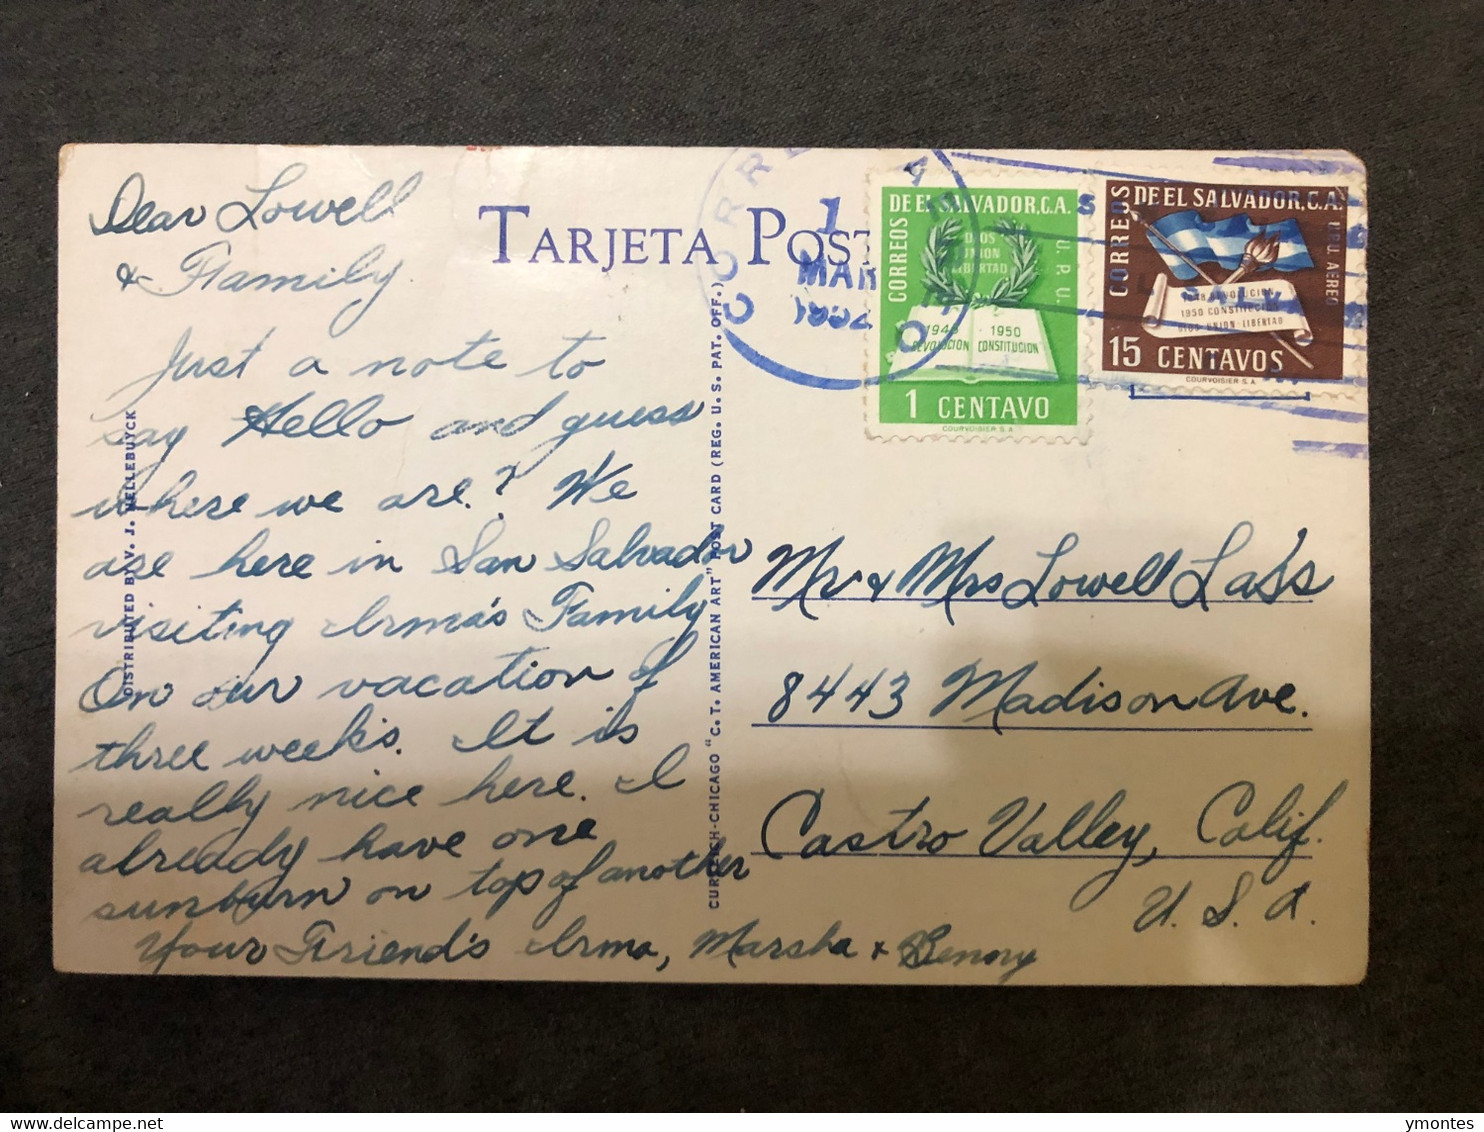 Dear Lowell
& Family
Just a note to
say Hello and guess
where we are? We
are here in San Salvador
visiting Irma's Family
On our vacation of
three weeks. It is
really nice here. I
already have one
sunburn on top of another
Your Friend's Irma, Marsha & Benny
DISTRIBUTED BY V. J. HELLEBUYCK
TARJETA POST
CURTEICH-CHICAGO "C. T. AMERICAN ART" POST CARD (REG. U. S. PAT. OFF.)
CORREO
1
MAR
CORREOS DE EL SALVADOR, C.A.
U.P.U.
DIOS
UNION
LIBERTAD
1948 - 1950
REVOLUCION CONSTITUCION
1 CENTAVO
COURVOISIER S.A.
CORREOS DE EL SALVADOR, C.A.
U.P.U. AEREO
1948 REVOLUCION
1950 CONSTITUCION
DIOS-UNION-LIBERTAD
15 CENTAVOS
COURVOISIER S.A.
Mr & Mrs Lowell
8443 Madison Ave.
Castro Valley, Calif.
U. S. A.
delcampe.net
ymontes